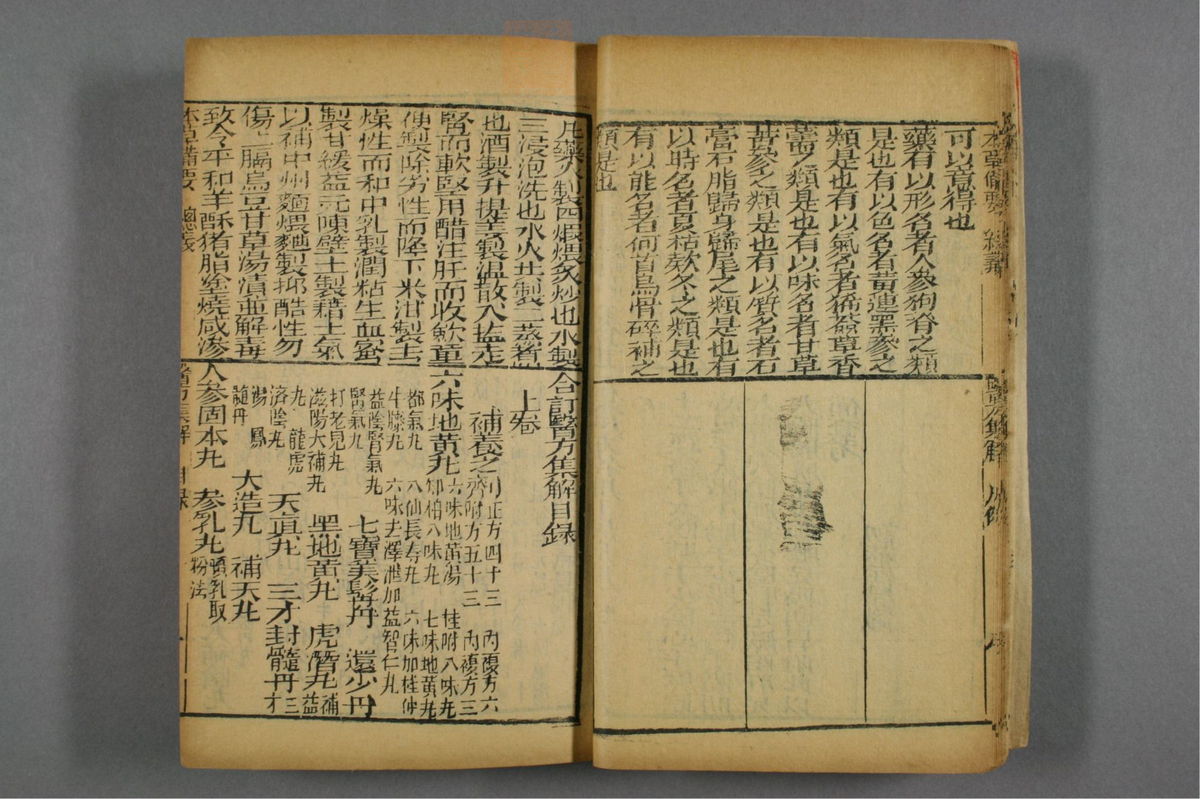 可以意得也
藥有以形名者人參狗脊之類
是也有以色名者黃連黑參之
類是也有以氣名者豨薟草香
薷之類是也有以味名者甘草
苦參之類是也有以質名者石
膏石脂歸身歸尾之類是也有
以時名者夏枯欸冬之類是也
有以能名者何首烏骨碎補之
類是也
本草備要
醫方集解
凡藥火製四煆煨炙炒也水製
三浸泡洗也水火共製二蒸煑
也酒製升提薑製温散入鹽走
腎而軟堅用醋注肝而收歛童
便製除劣性而降下米泔製去
燥性而和中乳製潤粘生血蜜
製甘緩益元陳壁土製藉土氣
以補中州麵煨麯製抑酷性勿
傷上膈烏豆甘草湯漬並解毒
致令平和羊酥猪脂塗燒咸滲
本草備要 總義
合訂醫方集解目錄
上卷
補養之劑 正方四十三 內複方六
附方五十三 內複方三
六味地黃丸 六味地黃湯 桂附八味丸
知柏八味丸 七味地黃丸
都氣丸 八仙長壽丸 六味加桂仲
牛膝丸 六味去澤瀉加益智仁丸
益陰腎氣丸
腎氣丸 七寶美髯丹 還少丹
打老兒丸
滋陽大補丸 黑地黃丸 虎潛丸 補益
丸 龍虎
濟陰丸 天真丸 三才封髓丹 三才
湯 鳳
髓丹 大造丸 補天丸
人參固本丸 參乳丸 頓乳取
粉法
醫方集解 目錄